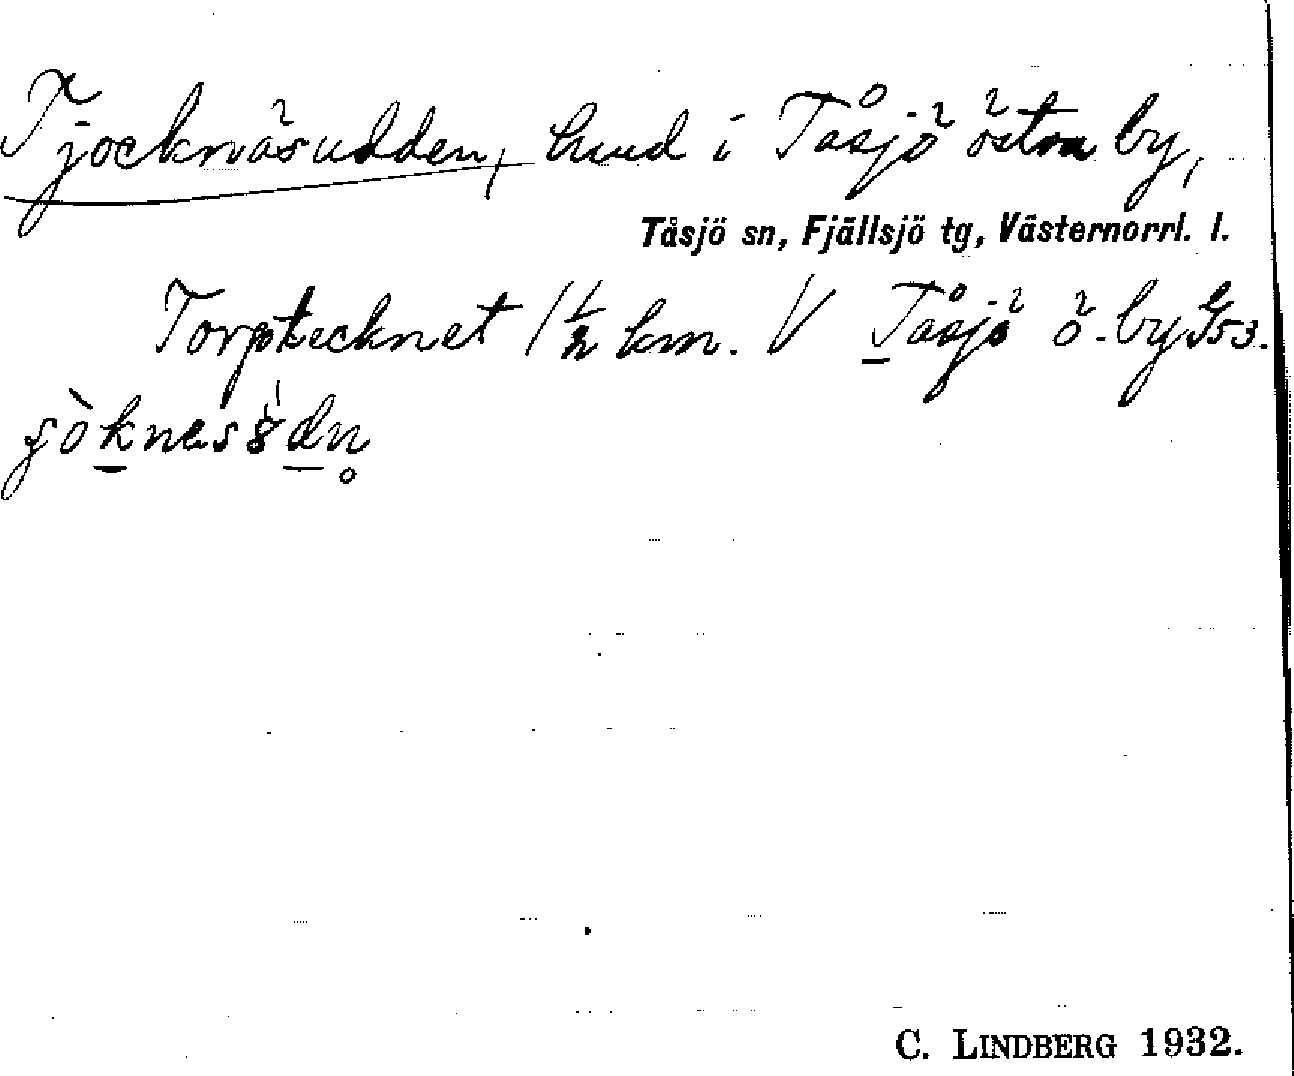 Tjocknäsudden, hmd i Tåsjö östra by,
Tåsjö sn, Fjällsjö tg, Västernorrl. l.
Torptecknet 1 1/2 km. V Tåsjö ö. by G53.
C. LINDBERG 1932.